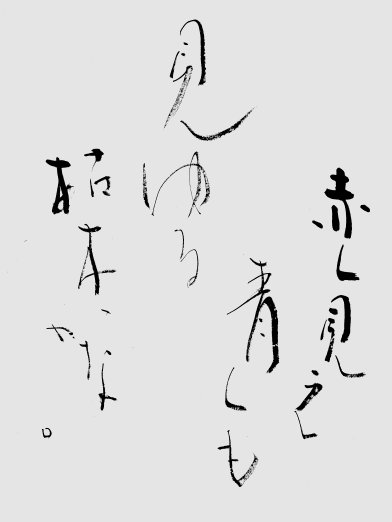 赤く見え
青くも
見ゆる
枯木かな